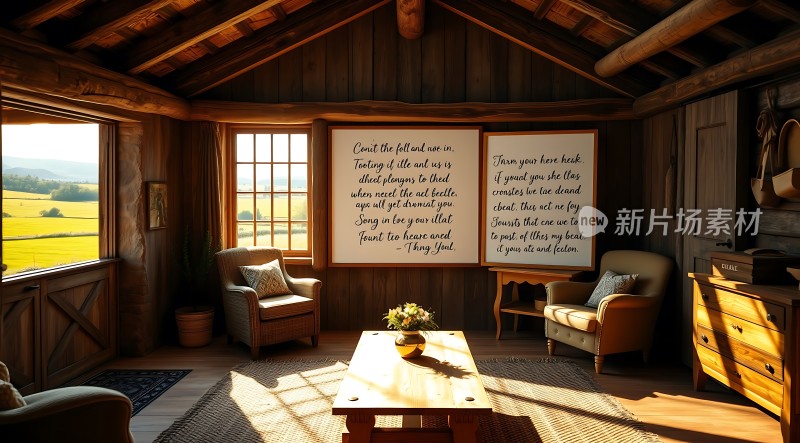 Conit the foll and noe in,
Tooting if ille ant us is
dheet plengors to thed
when necel the acl beelle,
aps ull yet drwomat you.
Song in love your illat
Fount teo hearre anced.
- Thny Youl.
Tarm your hove hesk,
if yourd you she tlas
cronstes live lare deand
cbeat, this act ne foy
Soursts that cne we to
to past, of theis my beas
if send ars and feclon.
new
新片场素材